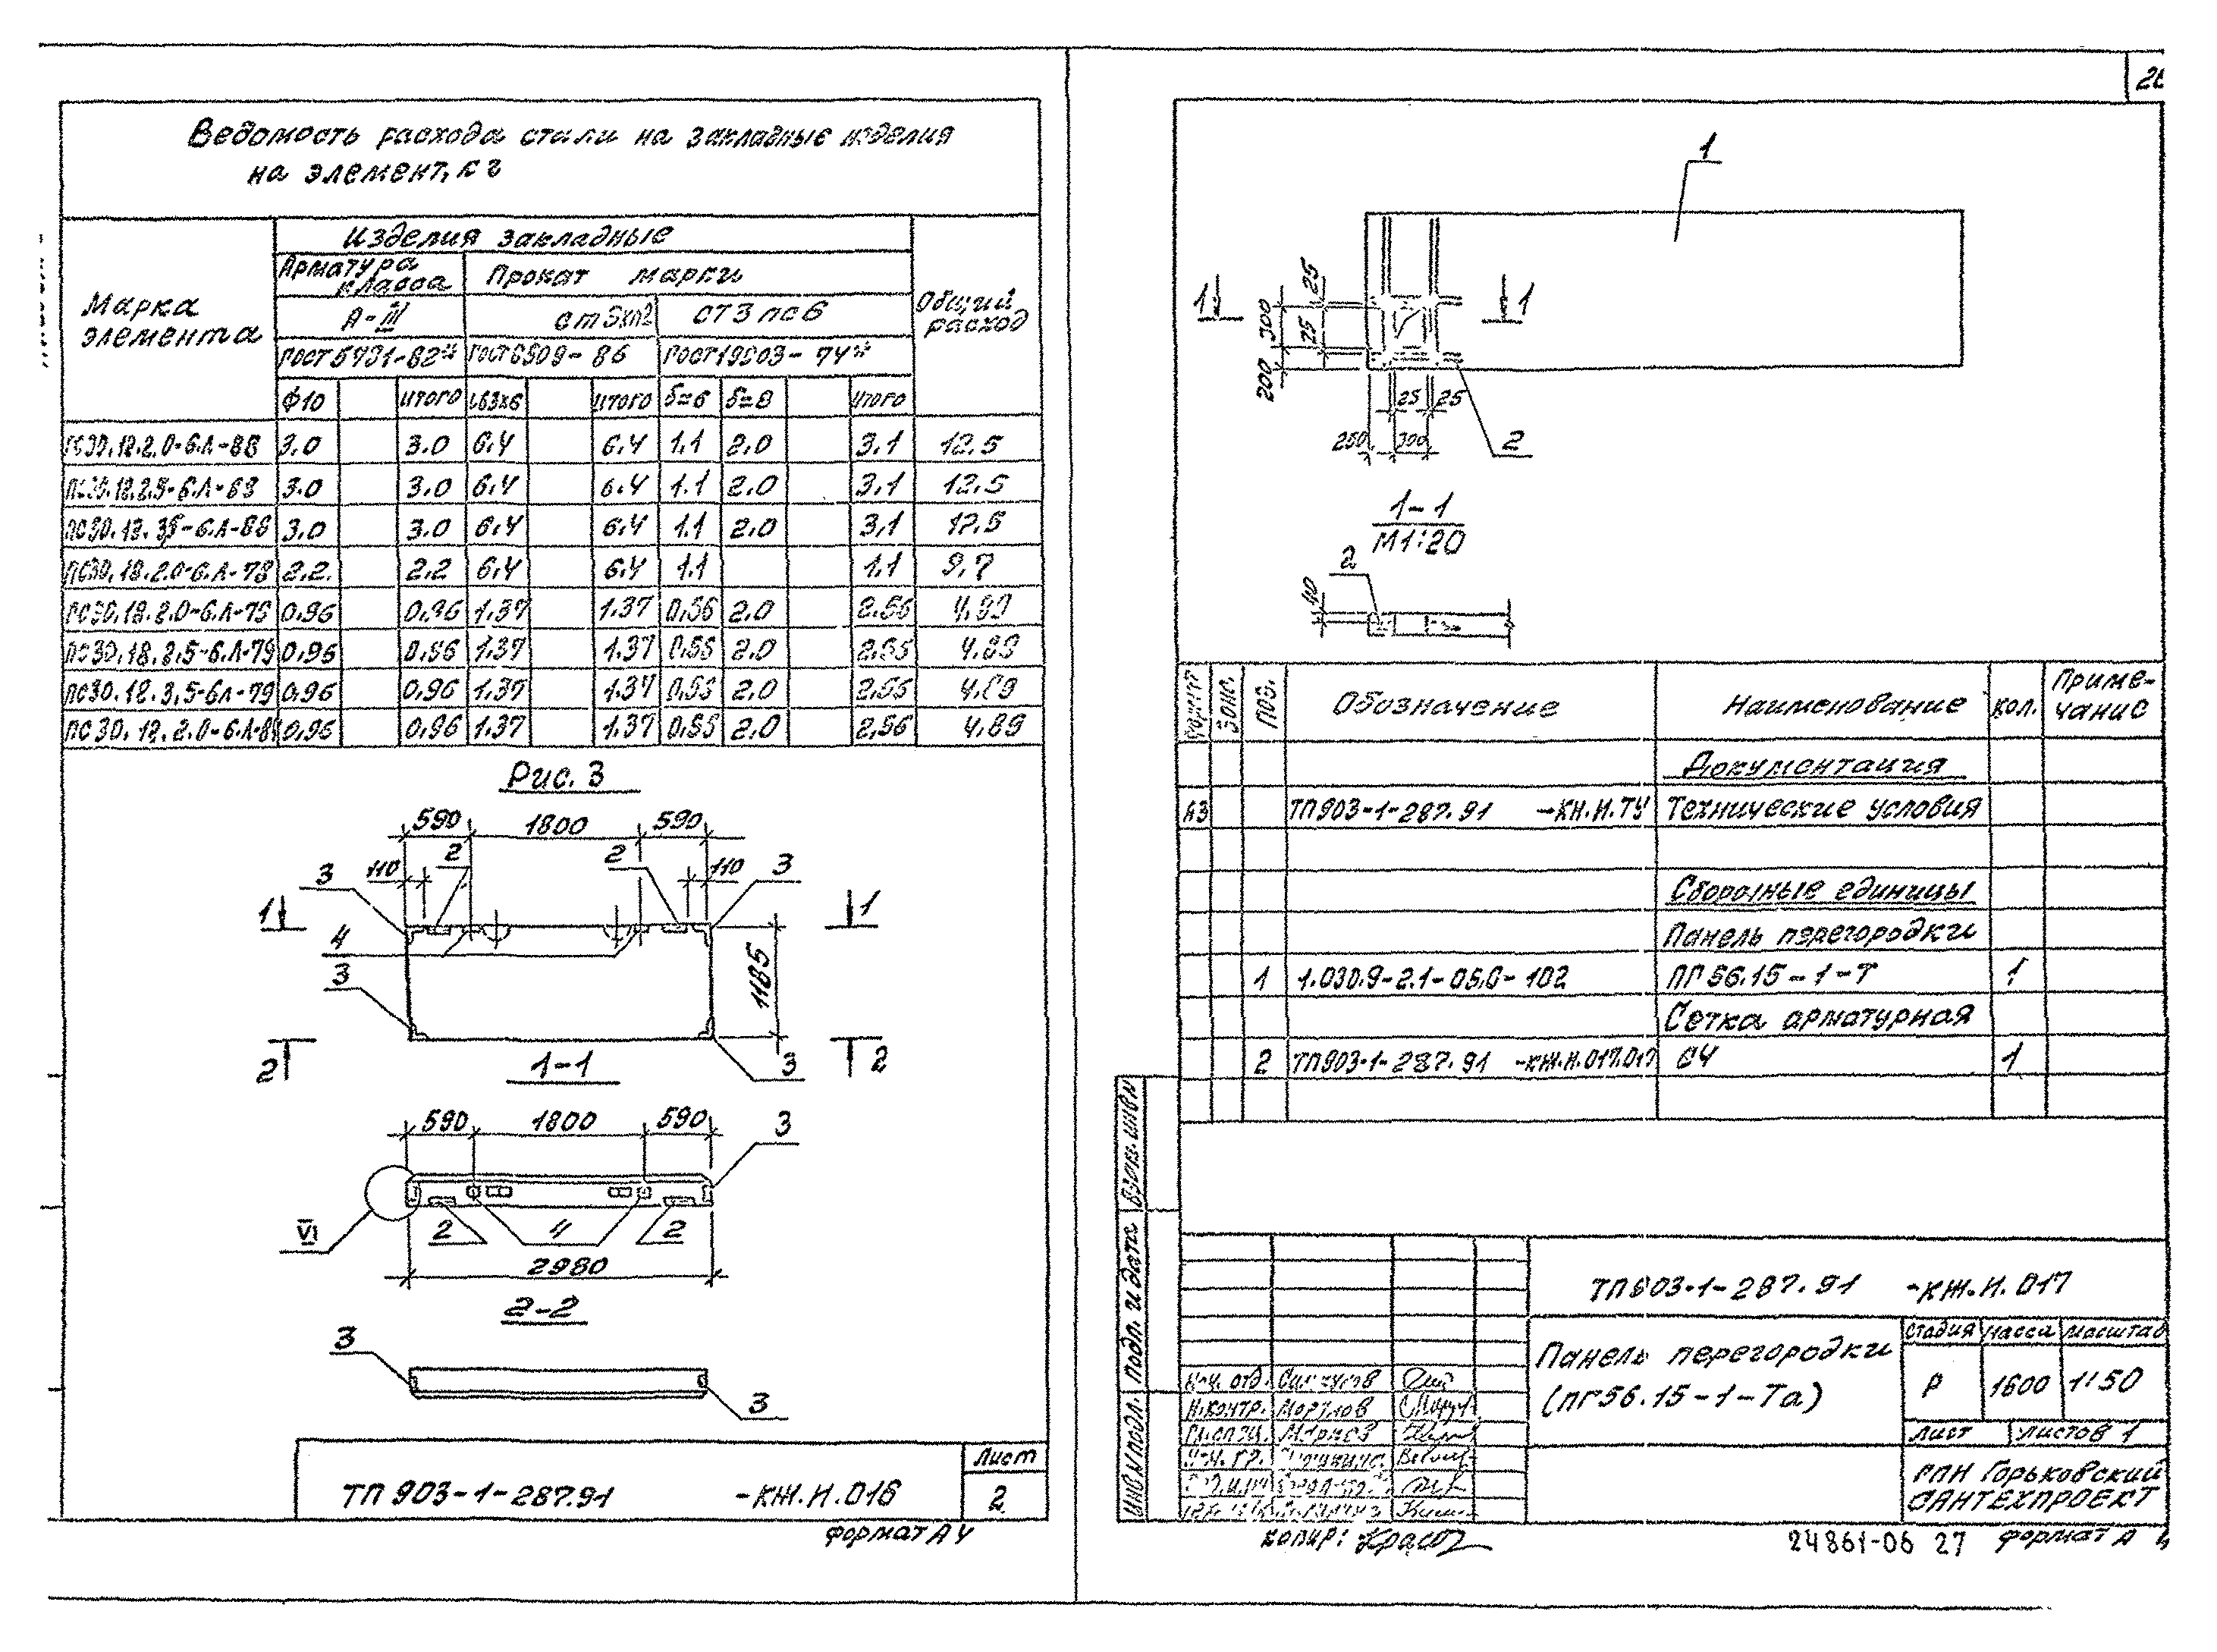 Ведомость расхода стали на закладные изделия
на элемент, кг
Марка элемента
Изделия закладные
Общий расход
Арматура класса
Прокат марки
А-III
ст3кп2
ст3пс6
ГОСТ5781-82*
ГОСТ8509-86
ГОСТ19903-74*
Ф10 итого L63х6 итого δ=6 δ=8 итого
ПС30.12.2.0-6.Л-88 3.0 3.0 6.4 6.4 1.1 2.0 3.1 12.5
3.0 3.0 6.4 6.4 1.1 2.0 3.1 12.5
3.0 3.0 6.4 6.4 1.1 2.0 3.1 12.5
ПС30.18.2.0-6.Л-78 2.2. 2.2 6.4 6.4 1.1 1.1 9.7
ПС30.18.2.0-6.Л-79 0.96 0.96 1.37 1.37 0.56 2.0 2.56 4.89
ПС30.18.2.5-6.Л-79 0.96 0.96 1.37 1.37 2.0 4.89
ПС30.12.3.5-6Л-79 0.96 0.96 1.37 1.37 2.0 4.89
0.96 0.96 1.37 1.37 2.0 2.56 4.89
Рис. 3
590 1800 590
110 2 2 110
3 3
1 1
4
3
1185
2 3 2
1-1
590 1800 590
3
VI 2 4 2
2980
2-2
3
3
ТП 903-1-287.91 -КЖ.И.016
Лист
2
Формат А4
1
1 1
25
300
25
200
25 25
250 300
2
1-1
М1:20
2
40
Формат Зона Поз. Обозначение Наименование Кол. Приме-
чание
Документация
А3 ТП903-1-287.91 -КЖ.И.ТУ Технические условия
Сборочные единицы
Панель перегородки
1 1.030.9-2.1-05.0-102 ПГ56.15-1-Т 1
Сетка арматурная
2 ТП903-1-287.91 -КЖ.И.017.017 С4 1
Взам. инв. N
Подл. и дата
Инв. N подл.
ТП903-1-287.91 -КЖ.И.017
Панель перегородки
(ПГ56.15-1-Та)
Стадия Масса Масштаб
Р 1600 1:50
Лист Листов 1
ГПИ Горьковский
САНТЕХПРОЕКТ
Нач. отд.
Н.контр.
Нач. гр.
Копир:
24861-06 27 Формат А4